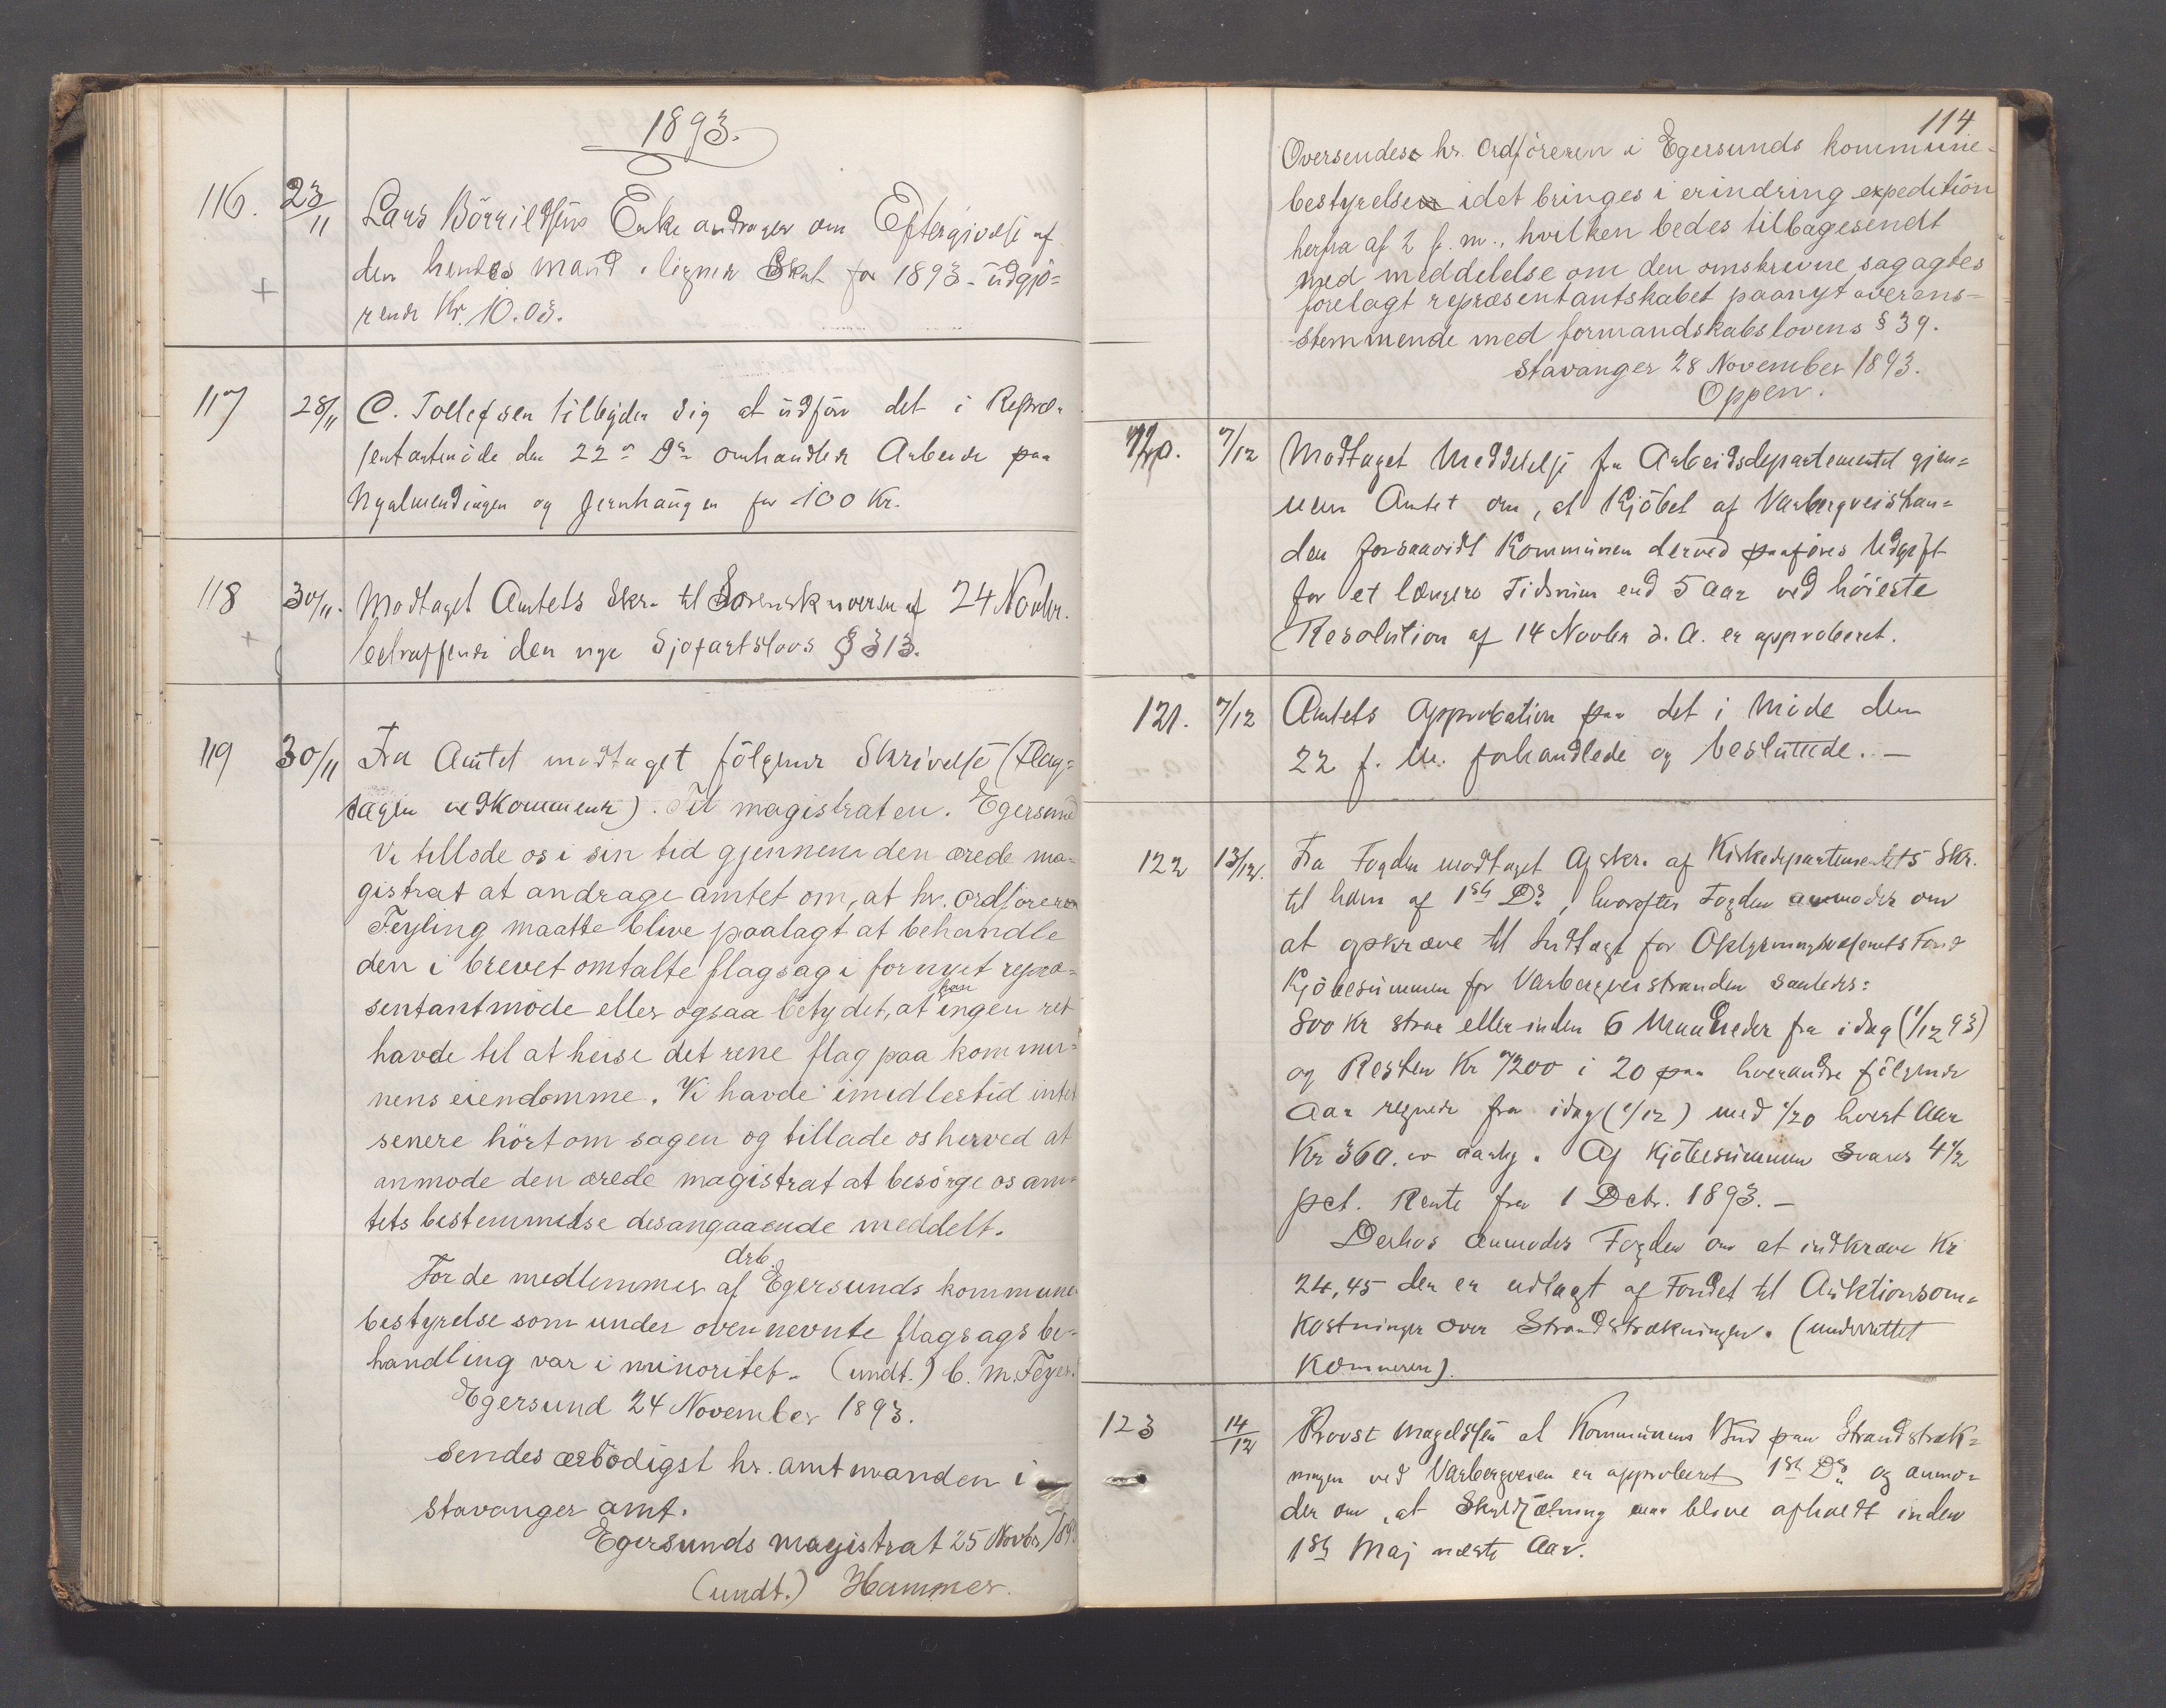 1893.
116. 23/11 Lars Börrildsens Enke andrager om Eftergivelse af
den hendes mand ilignede Skat for 1893 - udgjö=
rende Kr. 10.03.
117 28/11 C. Tollefsen tilbyder sig at udföre det i Repræ=
sentantmöde den 22de Ds omhandlede Arbeide paa
Nyalmendingen og Jernhaugen for 100 Kr.
118 30/11. Modtaget Amtets Skr. til Sorenskriveren af 24 Novbr.
betræffende den nye Sjöfartslovs § 313.
119 30/11 Fra Amtet modtaget fölgende Skrivelse (Flag=
sagen vedkommende). Til magistraten. Egersund
Vi tillode os i sin tid gjennem den ærede ma=
gistrat at andrage amtet om, at hr. ordföreren
Feyling maatte blive paalagt at behandle
den i brevet omtalte flagsag i fornyet repræ=
sentantmöde eller ogsaa betydet, at han ingen ret
havde til at heise det rene flag paa kommu=
nens eiendomme. Vi havde imidlertid intet
senere hört om sagen og tillade os herved at
anmode den ærede magistrat at besörge os am=
tets bestemmelse desangaaende meddelt.
For de medlemmer af drb. Egersunds kommune
bestyrelse som under ovennevnte flagsags be=
handling var i minoritet. (undt.) C. M. Feyer.
Egersund 24 November 1893.
Sendes ærbödigst hr. amtmanden i
Stavanger amt.
Egersunds magistrat 25 Novbr 189
(undt.) Hammer.
114
Oversendes hr. Ordföreren i Egersunds kommune-
bestyrelse idet bringes i erindring expedition
herfra af 2 f. m., hvilken bedes tilbagesendt
med meddelelse om den omskrevne sag agtes
forelagt repræsentantskabet paanyt overens=
stemmende med formandskabslovens § 39.
Stavanger 28 November 1893.
Oppen.
120. 7/12 Modtaget Meddelelse fra Arbeidsdepartementet gjen=
nem Amtet om, at Kjöbet af Varbergveistran=
den forsaavidt Kommunen derved paaföres Udgift
for et længere Tidsrum end 5 Aar ved höieste
Resolution af 14 Novbr d. A. er approberet.
121. 7/12 Amtets Approbation paa det i Möde den
22 f. M. forhandlede og besluttede. —
122 13/12. Fra Fogden modtaget Afskr. af Kirkedepartementets Skr.
til ham af 1ste Ds, hvorefter Fogden anmoder om
at opkræve til Indtægt for Oplysningsvæsenets Fond
Kjöbesummen for Varbergveistranden saaledes:
800 Kr strax eller inden 6 Maaneder fra idag (1/12 93)
og Resten Kr 7200 i 20 paa hverandre fölgende
Aar regnede fra idag (1/12) med 1/20 hvert Aar
Kr 360. aarlig. Af Kjöbesummen svares 4 1/2
pct. Rente fra 1 Decbr. 1893. —
Derhos anmoder Fogden om at indkræve Kr
24,45 der er udlagt af Fondet til Auktionsom=
kostninger over Strandstrækningen. (underrettet
Kæmneren).
123 14/12 Provst Magelssen at Kommunens Bud paa Strandstræk=
ningen ved Varbergveien er approberet 1ste Ds og anmo=
der om, at Skyldsætning maa blive afholdt inden
1ste Maj næste Aar.